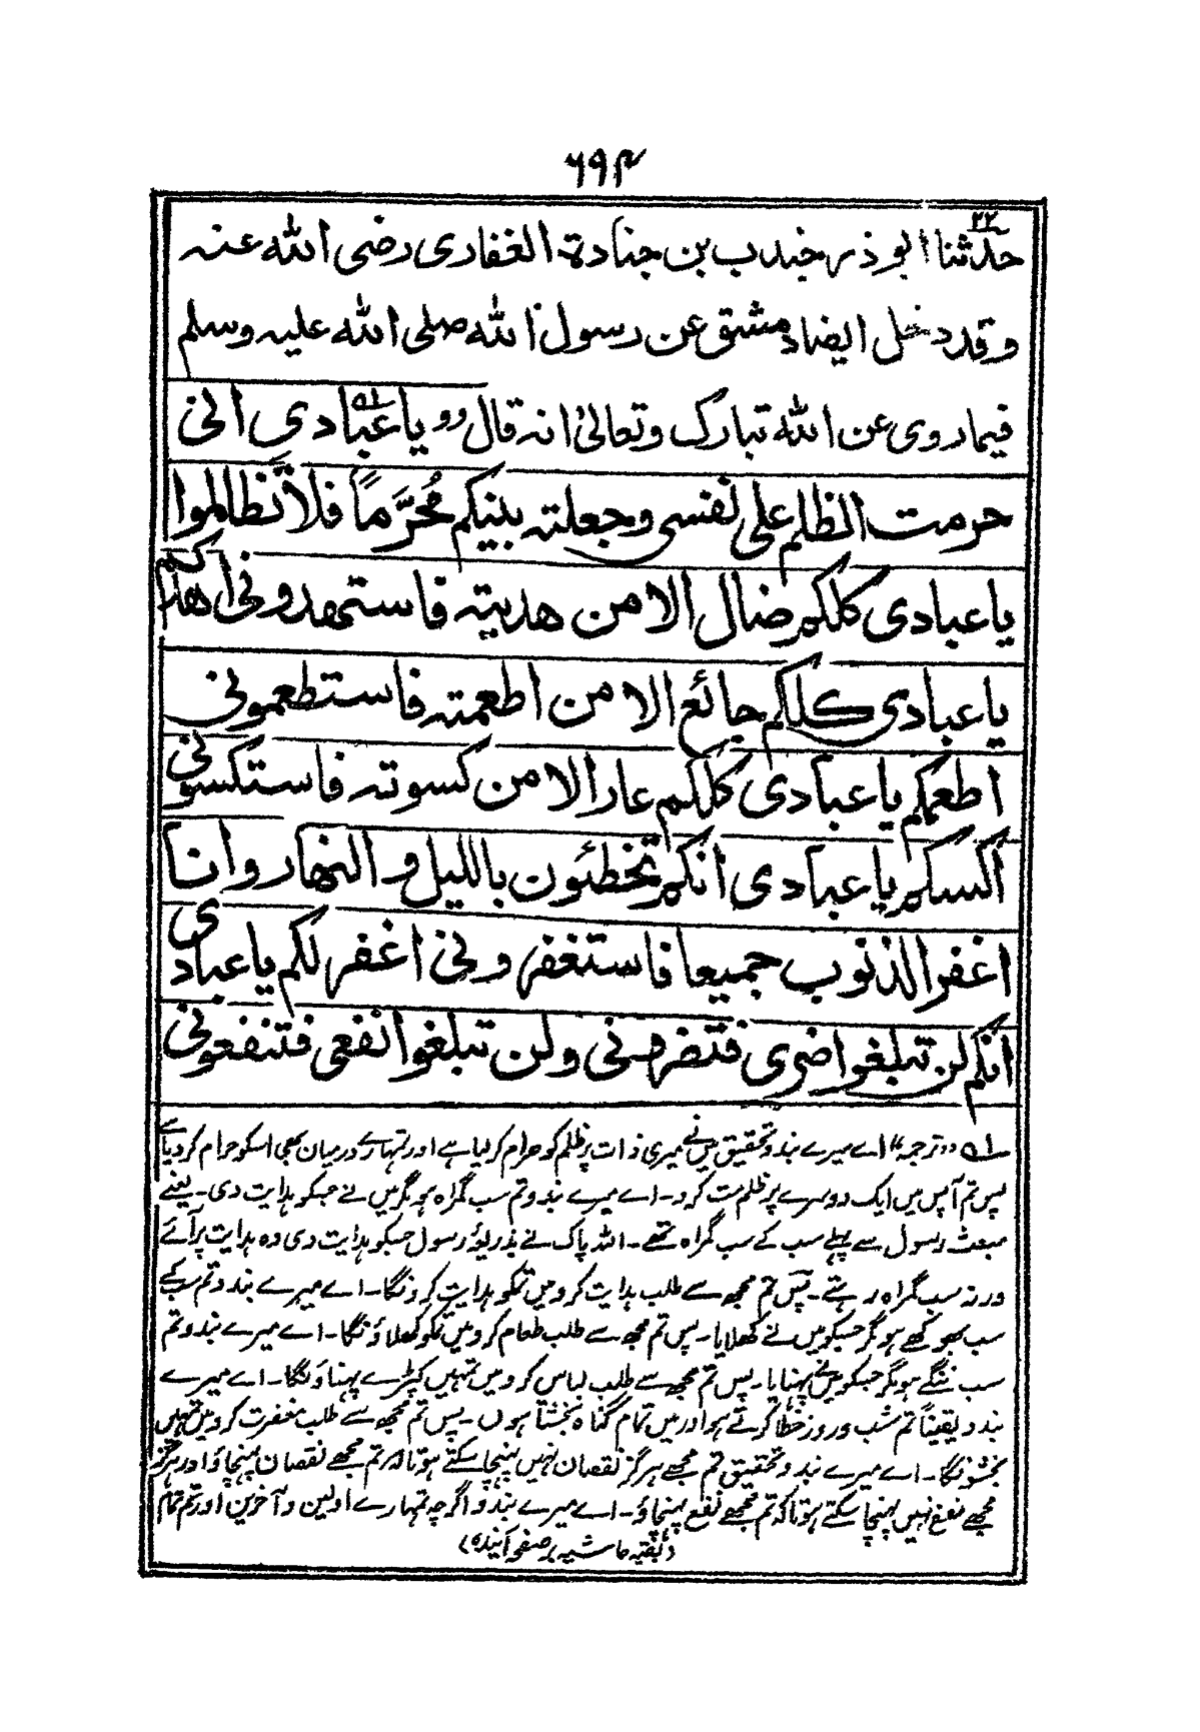 ۶۹۴
۲۲
حدثنا ابوذر جندب بن جنادة الغفاری رضی الله عنہ
وقد دخل ایضا دمشق عن رسول الله صلی الله علیہ وسلم
فیما روی عن الله تبارک وتعالیٰ انہ قال رو یا عبادی انی
حرمت الظلم علی نفسی وجعلتہ بینکم مُحَرَّماً فلا تَظالموا
یا عبادی کلکم ضال الا من هدیتہ فاستهدونی اهدکم
یا عبادی کلکم جائع الا من اطعمتہ فاستطعمونی
اطعمکم یا عبادی کلکم عار الا من کسوتہ فاستکسونی
اکسکم یا عبادی انکم تخطئون باللیل و النهار وانا
اغفر الذنوب جمیعا فاستغفرونی اغفر لکم یا عبادی
انکم لن تبلغوا ضری فتضرونی ولن تبلغوا نفعی فتنفعونی
لہ ”ترجمہ“ اے میرے بندو تحقیق میں نے میری ذات پر ظلم کو حرام کرلیا ہے اور تمہارے درمیان بھی اسکو حرام کردیا ہے
پس تم آپس میں ایک دوسرے پر ظلم مت کرو۔ اے میرے بندو تم سب گمراہ ہو مگر میں نے جسکو ہدایت دی۔ یعنے
مبعث رسول سے پہلے سب کے سب گمراہ تھے۔ اللہ پاک نے بذریعۂ رسول جسکو ہدایت دی وہ ہدایت پر آئے
ورنہ سب گمراہ رہتے۔ پس تم مجھ سے طلب ہدایت کرو میں تمکو ہدایت کرونگا۔ اے میرے بندو تم سب کے
سب بھوکھے ہو مگر جسکو میں نے کھلایا۔ پس تم مجھ سے طلب طعام کرو میں تمکو کھلاؤنگا۔ اے میرے بندو تم
سب ننگے ہو مگر جسکو میں نے پہنایا۔ پس تم مجھ سے طلب لباس کرو میں تمہیں کپڑے پہناؤنگا۔ اے میرے
بندو یقیناً تم شب و روز خطا کرتے ہو اور میں تمام گناہ بخشتا ہوں۔ پس تم مجھ سے طلب مغفرت کرو میں تمہیں
بخشونگا۔ اے میرے بندو تحقیق تم مجھے ہرگز نقصان نہیں پہنچا سکتے ہو تاکہ تم مجھے نقصان پہنچاؤ اور ہرگز
مجھے نفع نہیں پہنچا سکتے ہو تاکہ تم مجھے نفع پہنچاؤ۔ اے میرے بندو اگرچہ تمہارے اولین و آخرین اور تم تمام
(بقیہ حاشیہ بر صفحہ آئندہ)